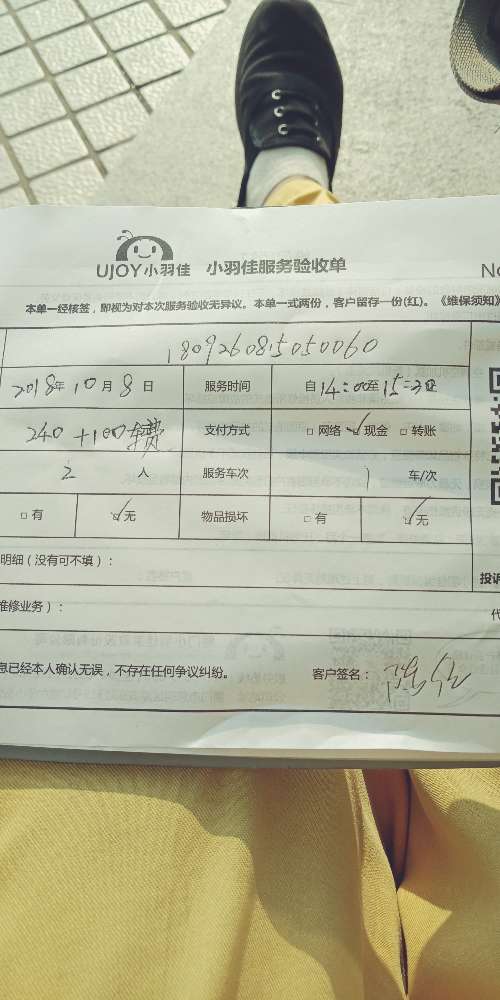 UJOY小羽佳 小羽佳服务验收单
No
本单一经核签，即视为对本次服务验收无异议。本单一式两份，客户留存一份(红)。《维保须知》
1809260815050060
2018年10月8日 服务时间 自14:00至15:30止
240+100 支付方式 □网络 ☑现金 □转账
2人 服务车次 1车/次
□有 ☑无 物品损坏 □有 ☑无
明细（没有可不填）：
投诉
维修业务）：
代
息已经本人确认无误，不存在任何争议纠纷。 客户签名：